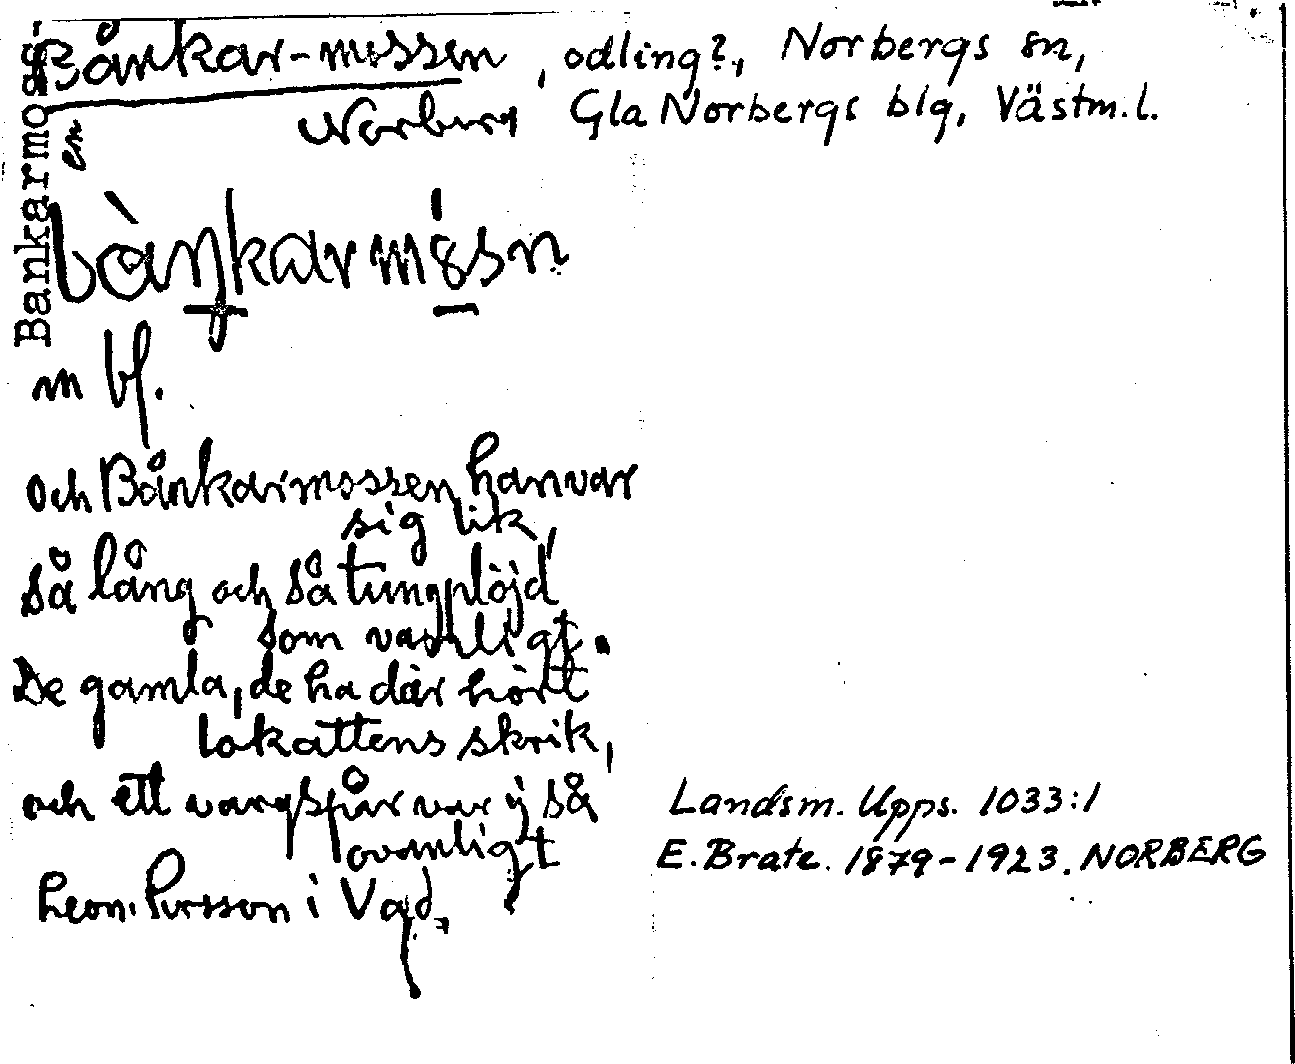 Bankarmoss
en
Bånkar-mossen, odling?, Norbergs sn,
Norberg Gla Norbergs blg, Västm.l.
bàŋkarmósn
m bf.
och Bånkarmossen han var
sig lik,
så lång och så tungplöjd
som vanligt.
De gamla, de ha där hört
lokattens skrik,
och ett vargspår var ej så
ovanligt
Leon. Persson i Vgd.
Landsm. Upps. 1033:1
E. Brate. 1879-1923. NORBERG